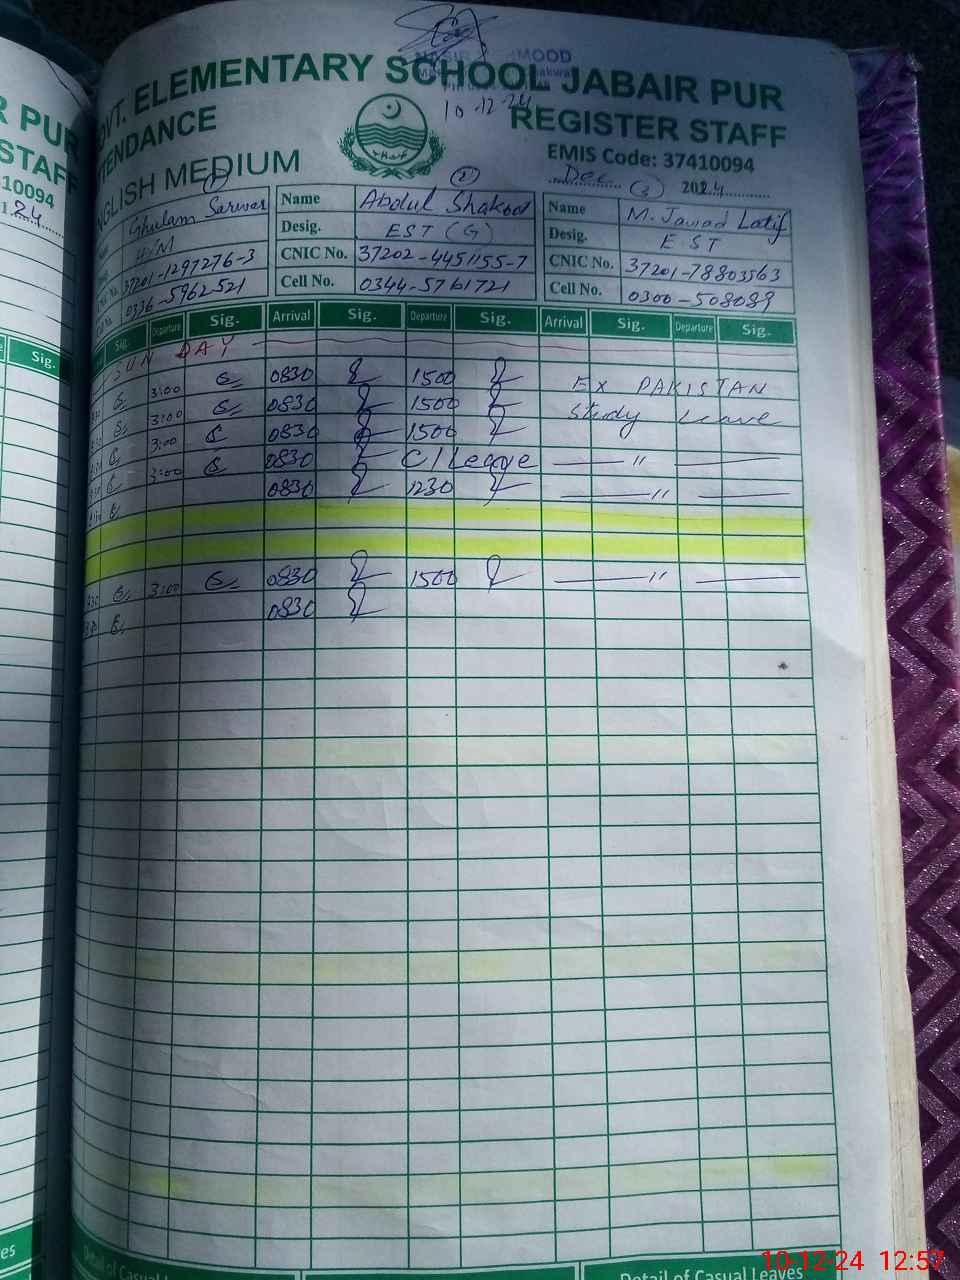 MOOD
GOVT. ELEMENTARY SCHOOL JABAIR PUR
10-12-24
ATTENDANCE REGISTER STAFF
EMIS Code: 37410094
ENGLISH MEDIUM
Dec 2024
(1) (2) (3)
Ghulam Sarwar Name Abdul Shakoor Name M. Jawad Latif
H/M Desig. EST (G) Desig. EST
37201-1297276-3 CNIC No. 37202-4451155-7 CNIC No. 37201-78803563
0336-5962521 Cell No. 0344-5761721 Cell No. 0300-508089
Sig. Departure Sig. Arrival Sig. Departure Sig. Arrival Sig. Departure Sig.
SUNDAY
3:00 0830 1500 EX PAKISTAN
3:00 0830 1500 Study Leave
3:00 0830 1500
3:00 0830 C/Leave "
0830 1230 "
3:00 0830 1500 "
0830
Detail of Casual Leaves
R PUR
STAFF
10094
24
Sig.
es
10-12-24 12:57